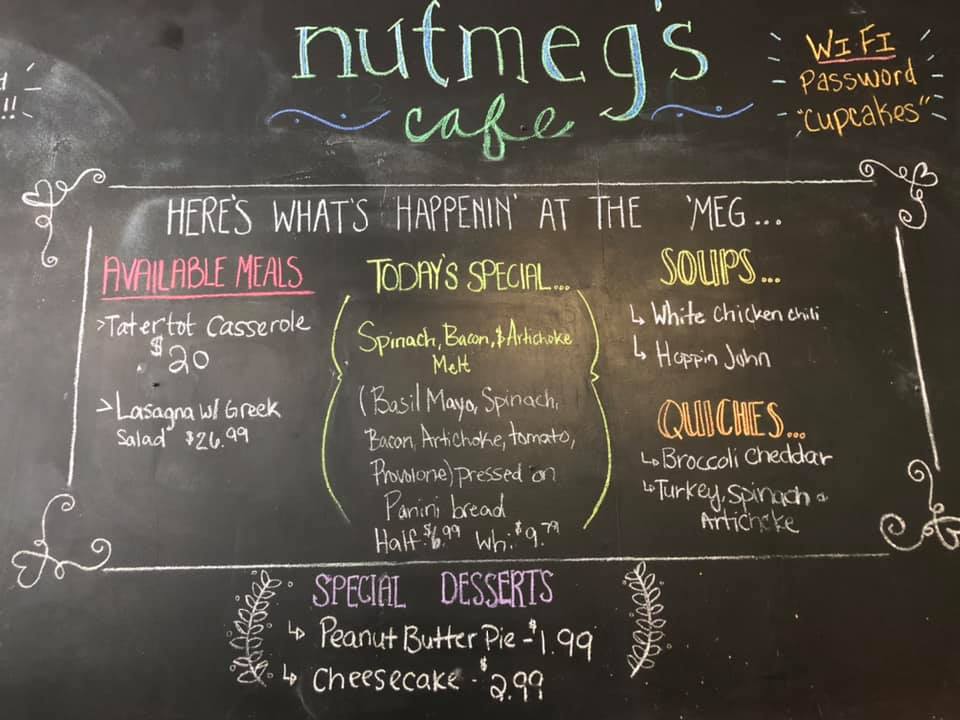 nutmeg's
cafe
WIFI
Password
"Cupcakes"
!!
HERE'S WHAT'S HAPPENIN' AT THE 'MEG...
AVAILABLE MEALS
>Tatertot Casserole
$20
>Lasagna w/ Greek
Salad $26.99
TODAY'S SPECIAL...
Spinach, Bacon, & Artichoke
Melt
(Basil Mayo, Spinach,
Bacon, Artichoke, tomato,
Provolone) pressed on
Panini bread
Half: $6.99 Wh: $9.79
SOUPS...
↳ White chicken chili
↳ Hoppin John
QUICHES...
↳ Broccoli Cheddar
↳ Turkey, Spinach &
Artichoke
SPECIAL DESSERTS
↳ Peanut Butter Pie - $1.99
↳ Cheesecake - $2.99